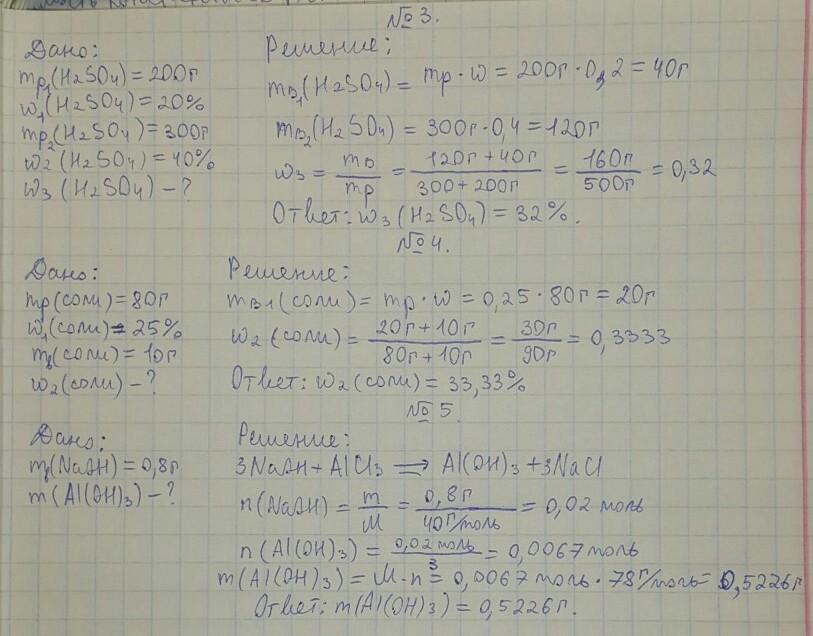 №3.
Дано:
mp₁(H₂SO₄)=200г
w₁(H₂SO₄)=20%
mp₂(H₂SO₄)=300г
w₂(H₂SO₄)=40%
w₃(H₂SO₄)-?
Решение:
mв₁(H₂SO₄)= mp·w = 200г·0,2=40г
mв₂(H₂SO₄)=300г·0,4=120г
w₃ = mв/mp = 120г+40г/300+200г = 160г/500г = 0,32
Ответ: w₃(H₂SO₄)=32%.
№4.
Дано:
mp(соли)=80г
w₁(соли)=25%
mв(соли)=10г
w₂(соли)-?
Решение:
mв₁(соли)= mp·w=0,25·80г=20г
w₂(соли)= 20г+10г/80г+10г = 30г/90г = 0,3333
Ответ: w₂(соли)=33,33%
№5.
Дано:
m(NaOH)=0,8г
m(Al(OH)₃)-?
Решение:
3NaOH+AlCl₃ ⟹ Al(OH)₃+3NaCl
n(NaOH)= m/M = 0,8г/40г/моль = 0,02 моль
n(Al(OH)₃)= 0,02 моль/3 = 0,0067 моль
m(Al(OH)₃)=M·n = 0,0067 моль·78г/моль= 0,5226г
Ответ: m(Al(OH)₃)=0,5226г.